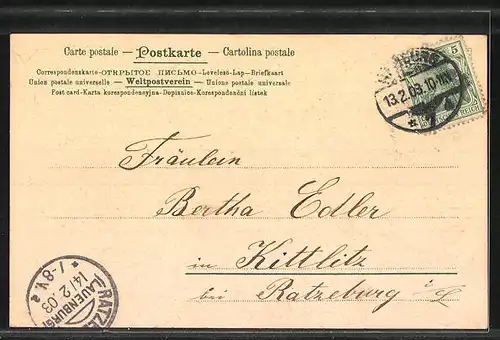 Carte postale — Postkarte — Cartolina postale
Correspondenzkarte-ОТКРЫТОЕ ПИСЬМО-Levelező-Lap-Briefkaart
Union postale universelle — Weltpostverein — Unione postale universale
Post card-Karta korespondencyjna-Dopisnice-Korespondenční lístek
5
13.2.03.10-11
Fräulein
Bertha Edler
in Kittlitz
bei Ratzeburg i/L
7-8V
14/2.03
RATZE
LAUENBURG